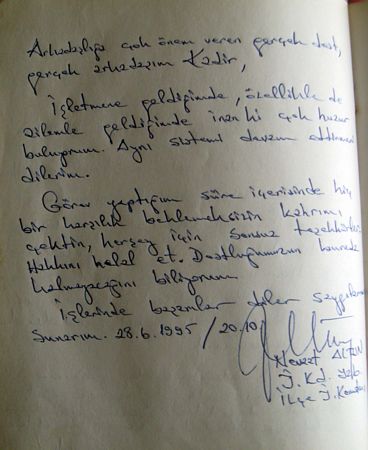 Arkadaşlığa çok önem veren gerçek dost,
gerçek arkadaşım Kadir,
İşletmene geldiğimde, özellikle de
ailemle geldiğimde inan ki çok huzur
buluyorum. Aynı sistemi devam ettirmeni
dilerim.
Görev yaptığım süre içerisinde hiç
bir karşılık beklemeksizin kahrımı
çektin, herşey için sonsuz teşekkürler
Hakkını helal et. Dostluğumuzun burada
kalmayacağını biliyorum
İşlerinde başarılar diler saygılarımı
Sunarım. 28.6.1995 / 20.10
ALTUN
J. Kd.
İlçe J. Komutanı